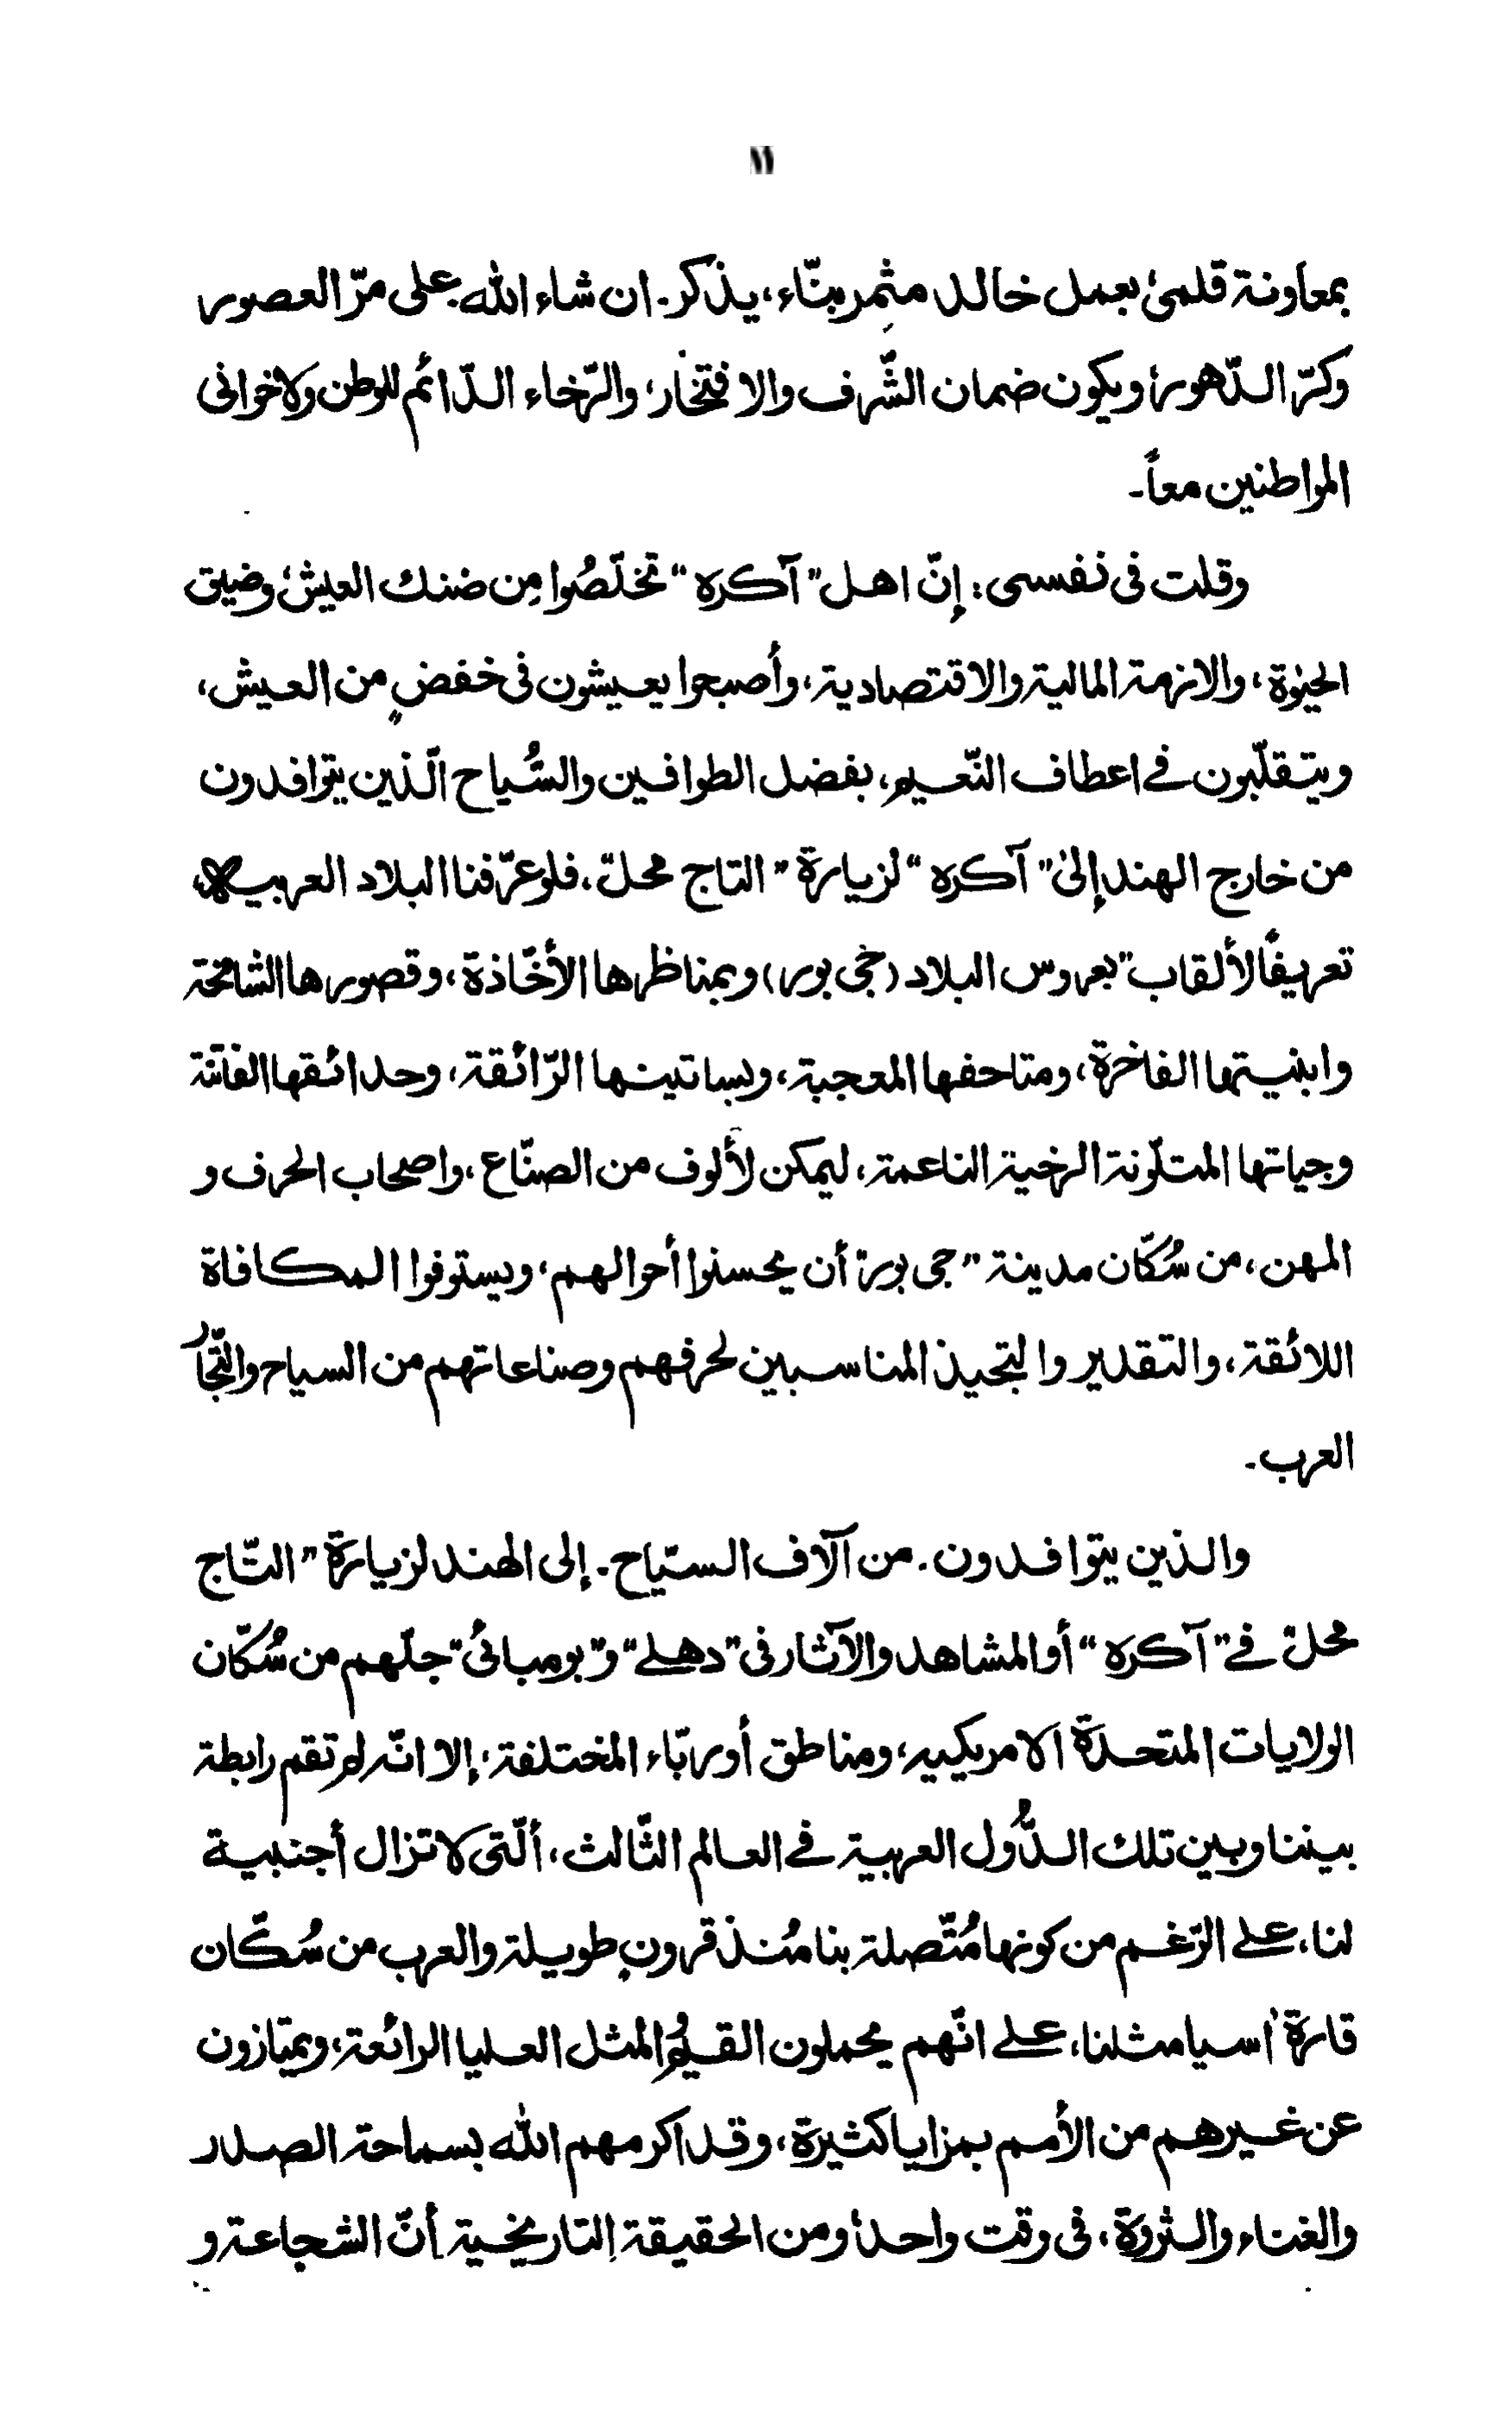 ١١
بمعاونة قلمی، بعمل خالد مثمر بنّاء، يذكر۔ ان شاء الله۔ علی مرّ العصور
وكرّ الدّهور، ويكون ضمان الشّرف والافتخار، والرّخاء الدّائم للوطن ولاخوانی
المواطنين معاً۔
وقلت فی نفسی: إنّ اهل "آكره" تخلّصُوا مِن ضنك العيش، وضيق
الحيٰوة، والازمة المالية والاقتصادية، وأصبحوا يعيشون فی خفضٍ من العيش،
ويتقلّبون فے اعطاف النّعيم، بفضل الطوافين والسُّياح الّذين يتوافدون
من خارج الهند إلیٰ "آكره" لزيارة "التاج محل"، فلو عرّفنا البلاد العربية
تعريفًا لألقاب "بعروس البلاد (جی بور) وبمناظرها الأخّاذة، وقصورها الشامخة
وابنيتها الفاخرة، ومتاحفها المعجبة، وبساتينها الرّائقة، وحدائقها الفاتنة
وحياتها المتلوّنة الرخية الناعمة، ليمكن لألوف من الصنّاع، واصحاب الحرف و
المهن، من سُكّان مدينة "جی بور" أن يحسنوا أحوالهم، ويستوفوا المكافاة
اللائقة، والتقدير والتحيذ المناسبين لحرفهم وصناعاتهم من السياح والتّجار
العرب۔
والذين يتوافدون۔ من آلاف السيّاح۔ إلی الهند لزيارة "التّاج
محل" فے "آكره" أو المشاهد والآثار فی "دهلے" و"بومبائی" جلّهم من سُكّان
الولايات المتحدة الامريكيه، ومناطق أوربّاء المختلفة، إلا انّه لم تقم رابطة
بيننا وبين تلك الدُّول العربية فے العالم الثّالث، ألّتی لا تزال أجنبية
لنا، علے الرّغم من كونها مُتّصلة بنا مُنذ قرونٍ طويلة والعرب من سُكّان
قارة اسيا مثلنا، علے انّهم يحملون القيم والمثل العليا الرائعة، ويمتازون
عن غيرهم من الأمم بمزايا كثيرة، وقد اكرمهم الله بسماحة الصدر
والغناء والثروة، فی وقت واحد، ومن الحقيقة التاريخية أنّ الشجاعة و